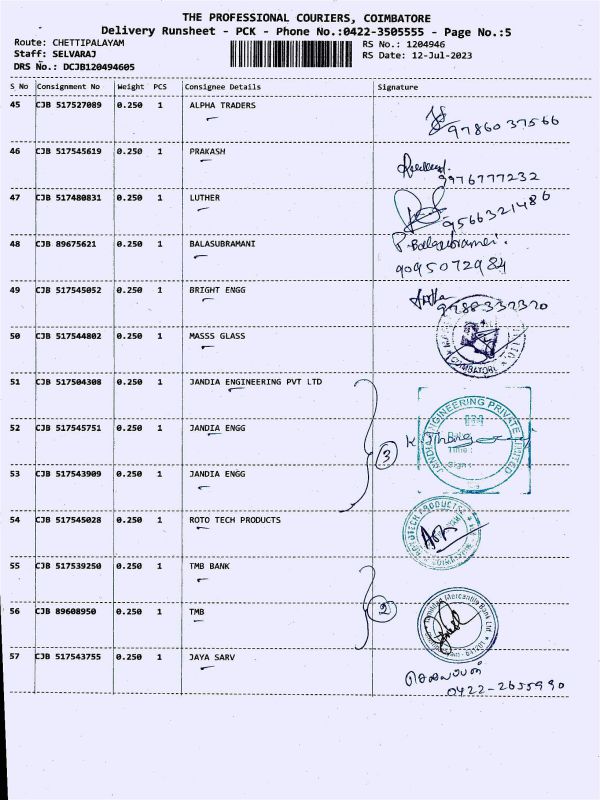 THE PROFESSIONAL COURIERS, COIMBATORE
Delivery Runsheet - PCK - Phone No.:0422-3505555 - Page No.:5
Route: CHETTIPALAYAM RS No.: 1204946
Staff: SELVARAJ RS Date: 12-Jul-2023
DRS No.: DCJB120494605
S No Consignment No Weight PCS Consignee Details Signature
45 CJB 517527089 0.250 1 ALPHA TRADERS
9786037566
46 CJB 517545619 0.250 1 PRAKASH
9976777232
47 CJB 517480831 0.250 1 LUTHER
9566321486
48 CJB 89675621 0.250 1 BALASUBRAMANI P. Balasubramani.
9095072984
49 CJB 517545052 0.250 1 BRIGHT ENGG
9788332320
50 CJB 517544802 0.250 1 MASSS GLASS
COIMBATORE
51 CJB 517504308 0.250 1 JANDIA ENGINEERING PVT LTD
JANDIA ENGINEERING PRIVATE LIMITED
52 CJB 517545751 0.250 1 JANDIA ENGG
3
Date :
Time :
Sign :
53 CJB 517543909 0.250 1 JANDIA ENGG
54 CJB 517545028 0.250 1 ROTO TECH PRODUCTS
ROTOTECH PRODUCTS
COIMBATORE
55 CJB 517539250 0.250 1 TMB BANK
56 CJB 89608950 0.250 1 TMB
2
Tamilnad Mercantile Bank Ltd
57 CJB 517543755 0.250 1 JAYA SARV
0422-2655990